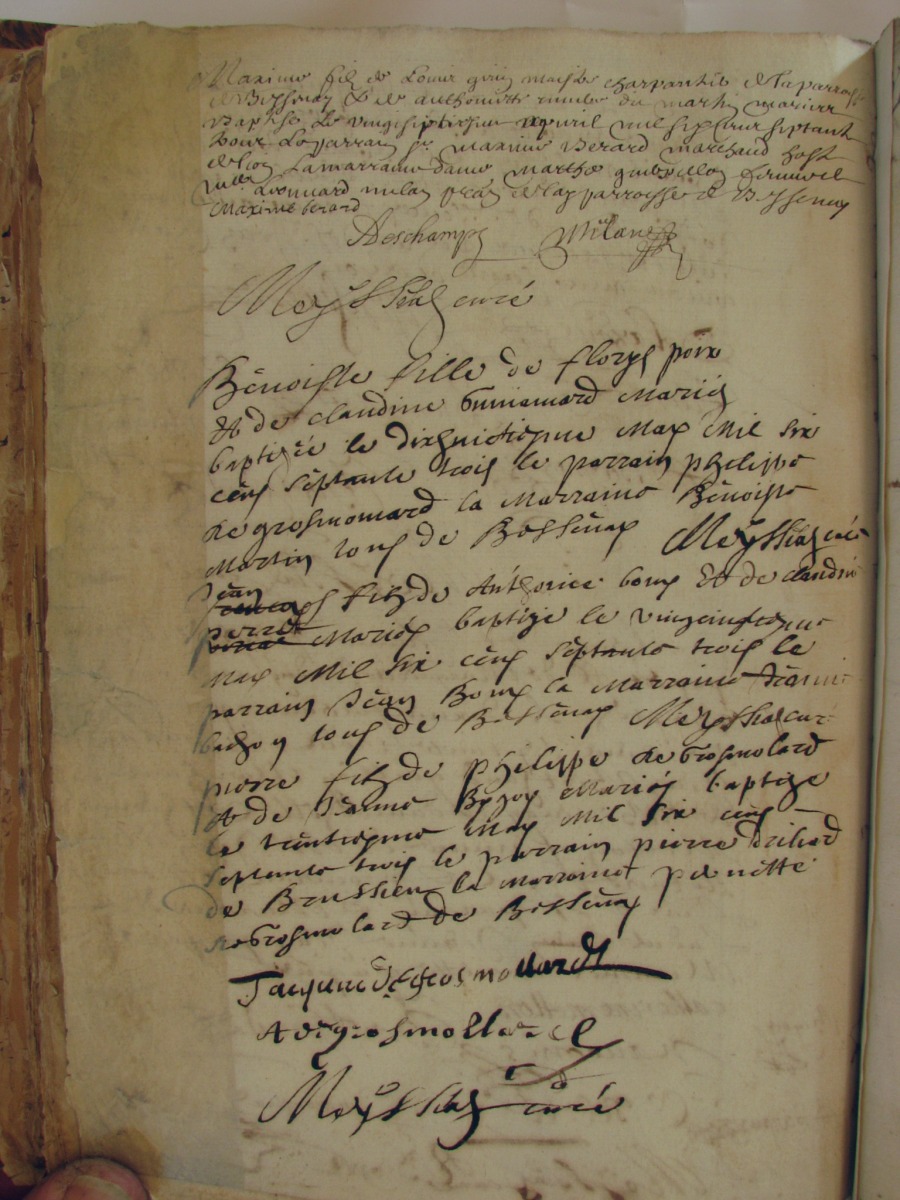 Maxime filz de Louis giriny maistre charpantier de la parroisse
de Bessenay & de anthoinette mariez
Baptisé Le vingtseptiesme apvril mil six cens septante
trois Le parrain Sr. maxime Berard marchand hoste
de La marraine dame marthe
Leonnard milan de la parroisse de Bessenay
Maxime berard
Deschamps Milan
Meyssias curé
Bènoiste fille de floris poix
Et de claudine Guinamard Mariés
baptizèe le dixhuictiesme May Mil six
cens septante trois le parrain philippe
de grosmomard la Marraine Bènoiste
Martin tous de Bessènay Meyssias curé
Jèan
filz de Anthoine bony Et de claudine
perret Mariés baptize le vingt
May Mil six cens septante trois le
parrain Jèan Bony la Marraine Jèanne
tous de Bessènay Meyssias cur
pierre filz de philippe de Grosmolard
Et de Jèanne Mariés baptize
le trèntiesme May Mil six cens
septante trois le parrain pierre
de Brussieu la Marraine pernètte
de Grosmolard de Bessènay
Jacques De grosmollard
A de grosmollard
Meyssias curé